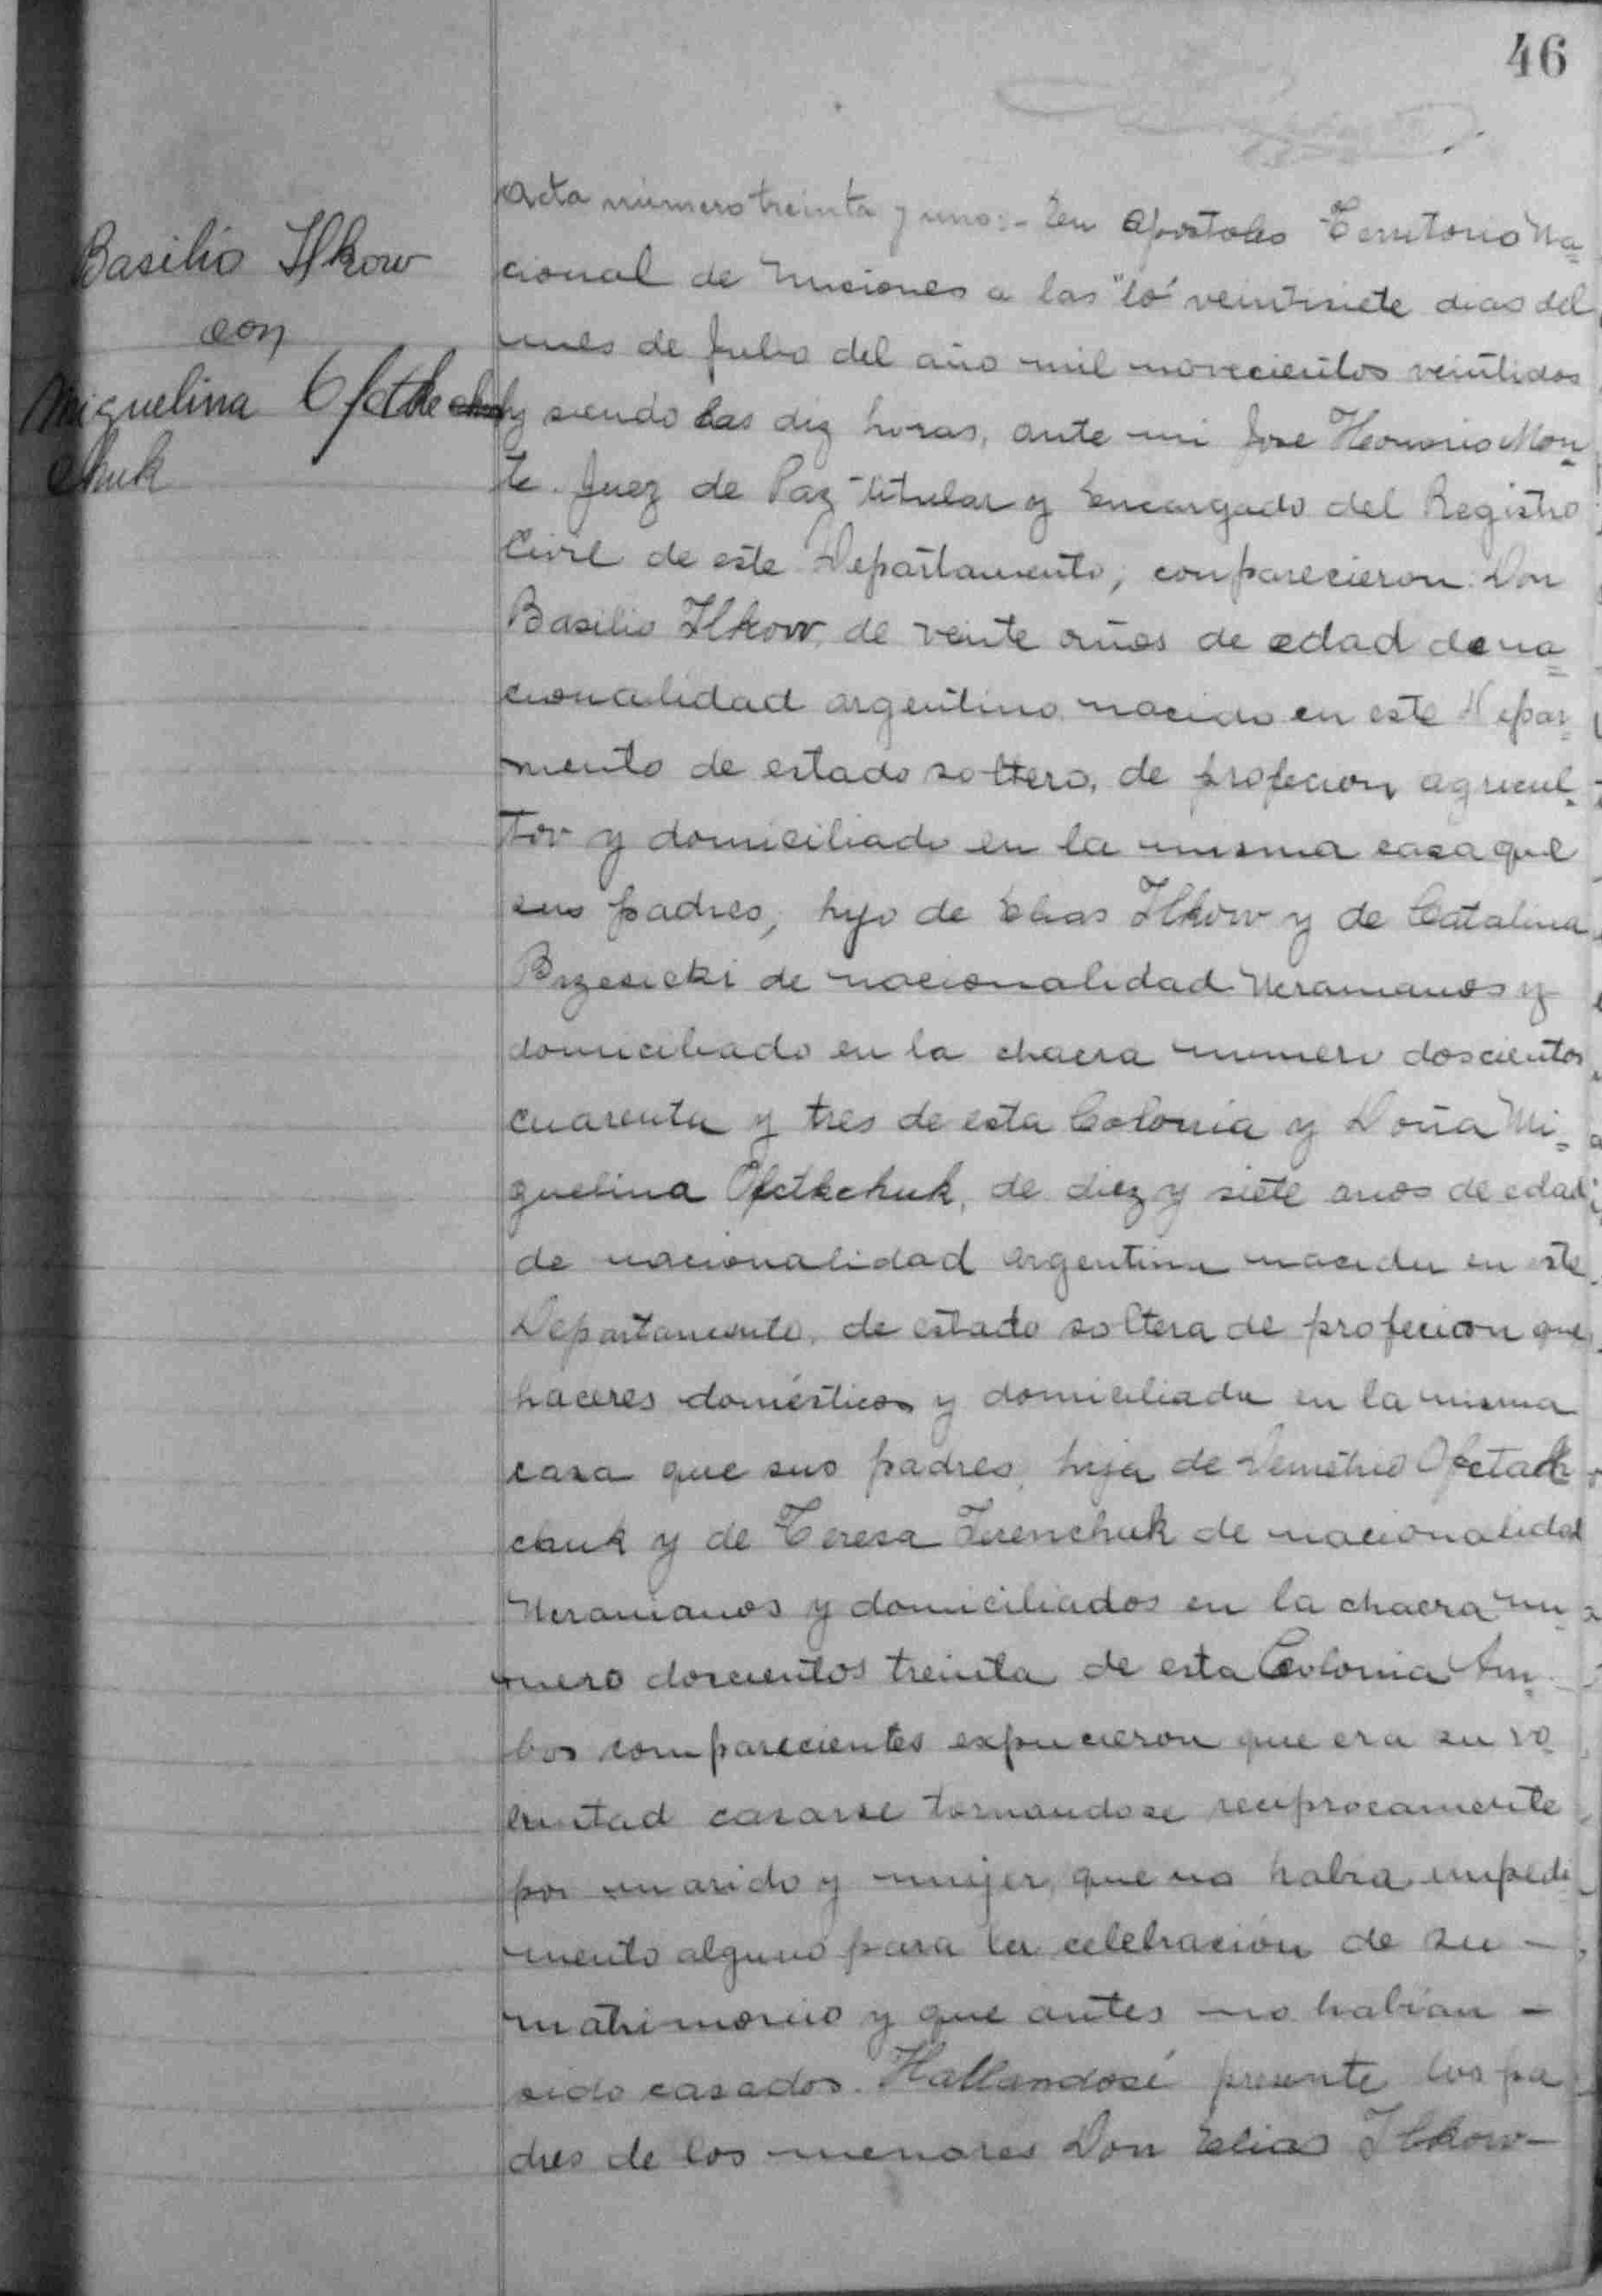 46
Basilio Ilkow
con
Miguelina Ofctke
chuk
Acta número treinta y uno:- En Apostoles Territorio Na=
cional de Misiones a los veintisiete dias del
mes de Julio del año mil novecientos veintidos
y siendo las diez horas, ante mi Jose Honorio Mon=
te Juez de Paz Titular y Encargado del Registro
Civil de este Departamento, comparecieron: Don
Basilio Ilkow, de veinte años de edad de na=
cionalidad argentino nacido en este Depar=
mento de estado soltero, de profecion agricul=
tor y domiciliado en la misma casa que
sus padres, hijo de Elias Ilkow y de Catalina
Brzesicki de nacionalidad Ucranianos y
domiciliado en la chacra numero doscientos
cuarenta y tres de esta Colonia y Doña Mi=
guelina Ofctkchuk, de diez y siete anos de edad
de nacionalidad argentina nacida en este
Departamento, de estado soltera de profecion que
haceres domésticos y domiciliada en la misma
casa que sus padres, hija de Demétrio Ofctach
chuk y de Teresa Terenchuk de nacionalidad
Ucranianos y domiciliados en la chacra nu=
mero doscientos treinta de esta Colonia Am=
bos comparecientes expucieron que era su vo=
luntad casarse tomandose reciprocamente
por marido y mujer, que no habia impedi=
mento alguno para la celebración de su -
matrimonio y que antes no habían -
sido casados. Hallandosé presente los pa
dres de los menores Don Elias Ilkow-